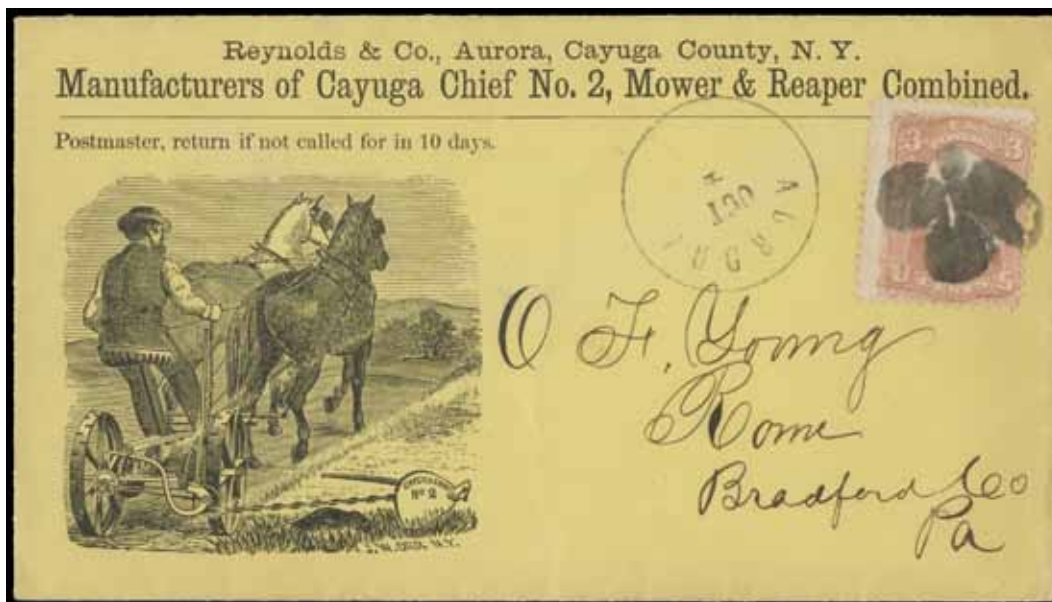 Reynolds & Co., Aurora, Cayuga County, N. Y.
Manufacturers of Cayuga Chief No. 2, Mower & Reaper Combined.
Postmaster, return if not called for in 10 days.
AURORA
OCT
3 3
U S
O F. Young
Rome
Bradford Co
Pa
No 2
N.Y.